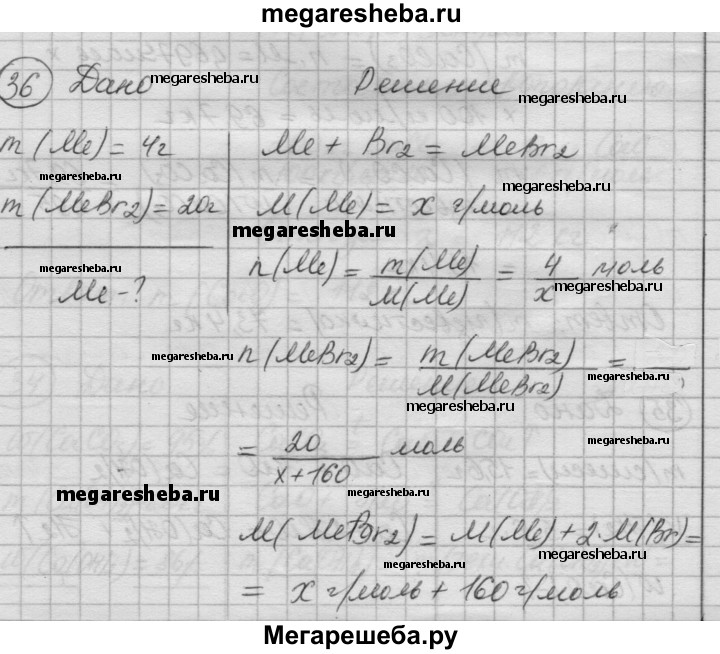 megaresheba.ru
36 Дано megaresheba.ru Решение megaresheba.ru
m (Me) = 4г Me + Br2 = MeBr2
megaresheba.ru megaresheba.ru
m (MeBr2) = 20г M(Me) = x г/моль
megaresheba.ru
megaresheba.ru n(Me) = m(Me) / M(Me) = 4 / x моль megaresheba.ru
Me - ?
megaresheba.ru n(MeBr2) = m(MeBr2) / M(MeBr2) = megaresheba.ru
megaresheba.ru
= 20 / x+160 моль megaresheba.ru
megaresheba.ru megaresheba.ru
M(MeBr2) = M(Me) + 2·M(Br) =
megaresheba.ru
= x г/моль + 160 г/моль
Мегарешеба.ру